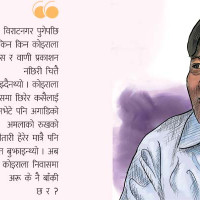 विराटनगर पुगेपछि
किन किन कोइराला
स र वाणी प्रकाशन
नछिरी चित्तै
झ्दैनथ्यो । कोइराला
समा छिरेर कसैलाई
नभेटे पनि अगाडिको
अमलाको रुखको
तारी हेरेर मात्रै पनि
त बुझाइन्थ्यो । अब
कोइराला निवासमा
अरू के नै बाँकी
छ र ?